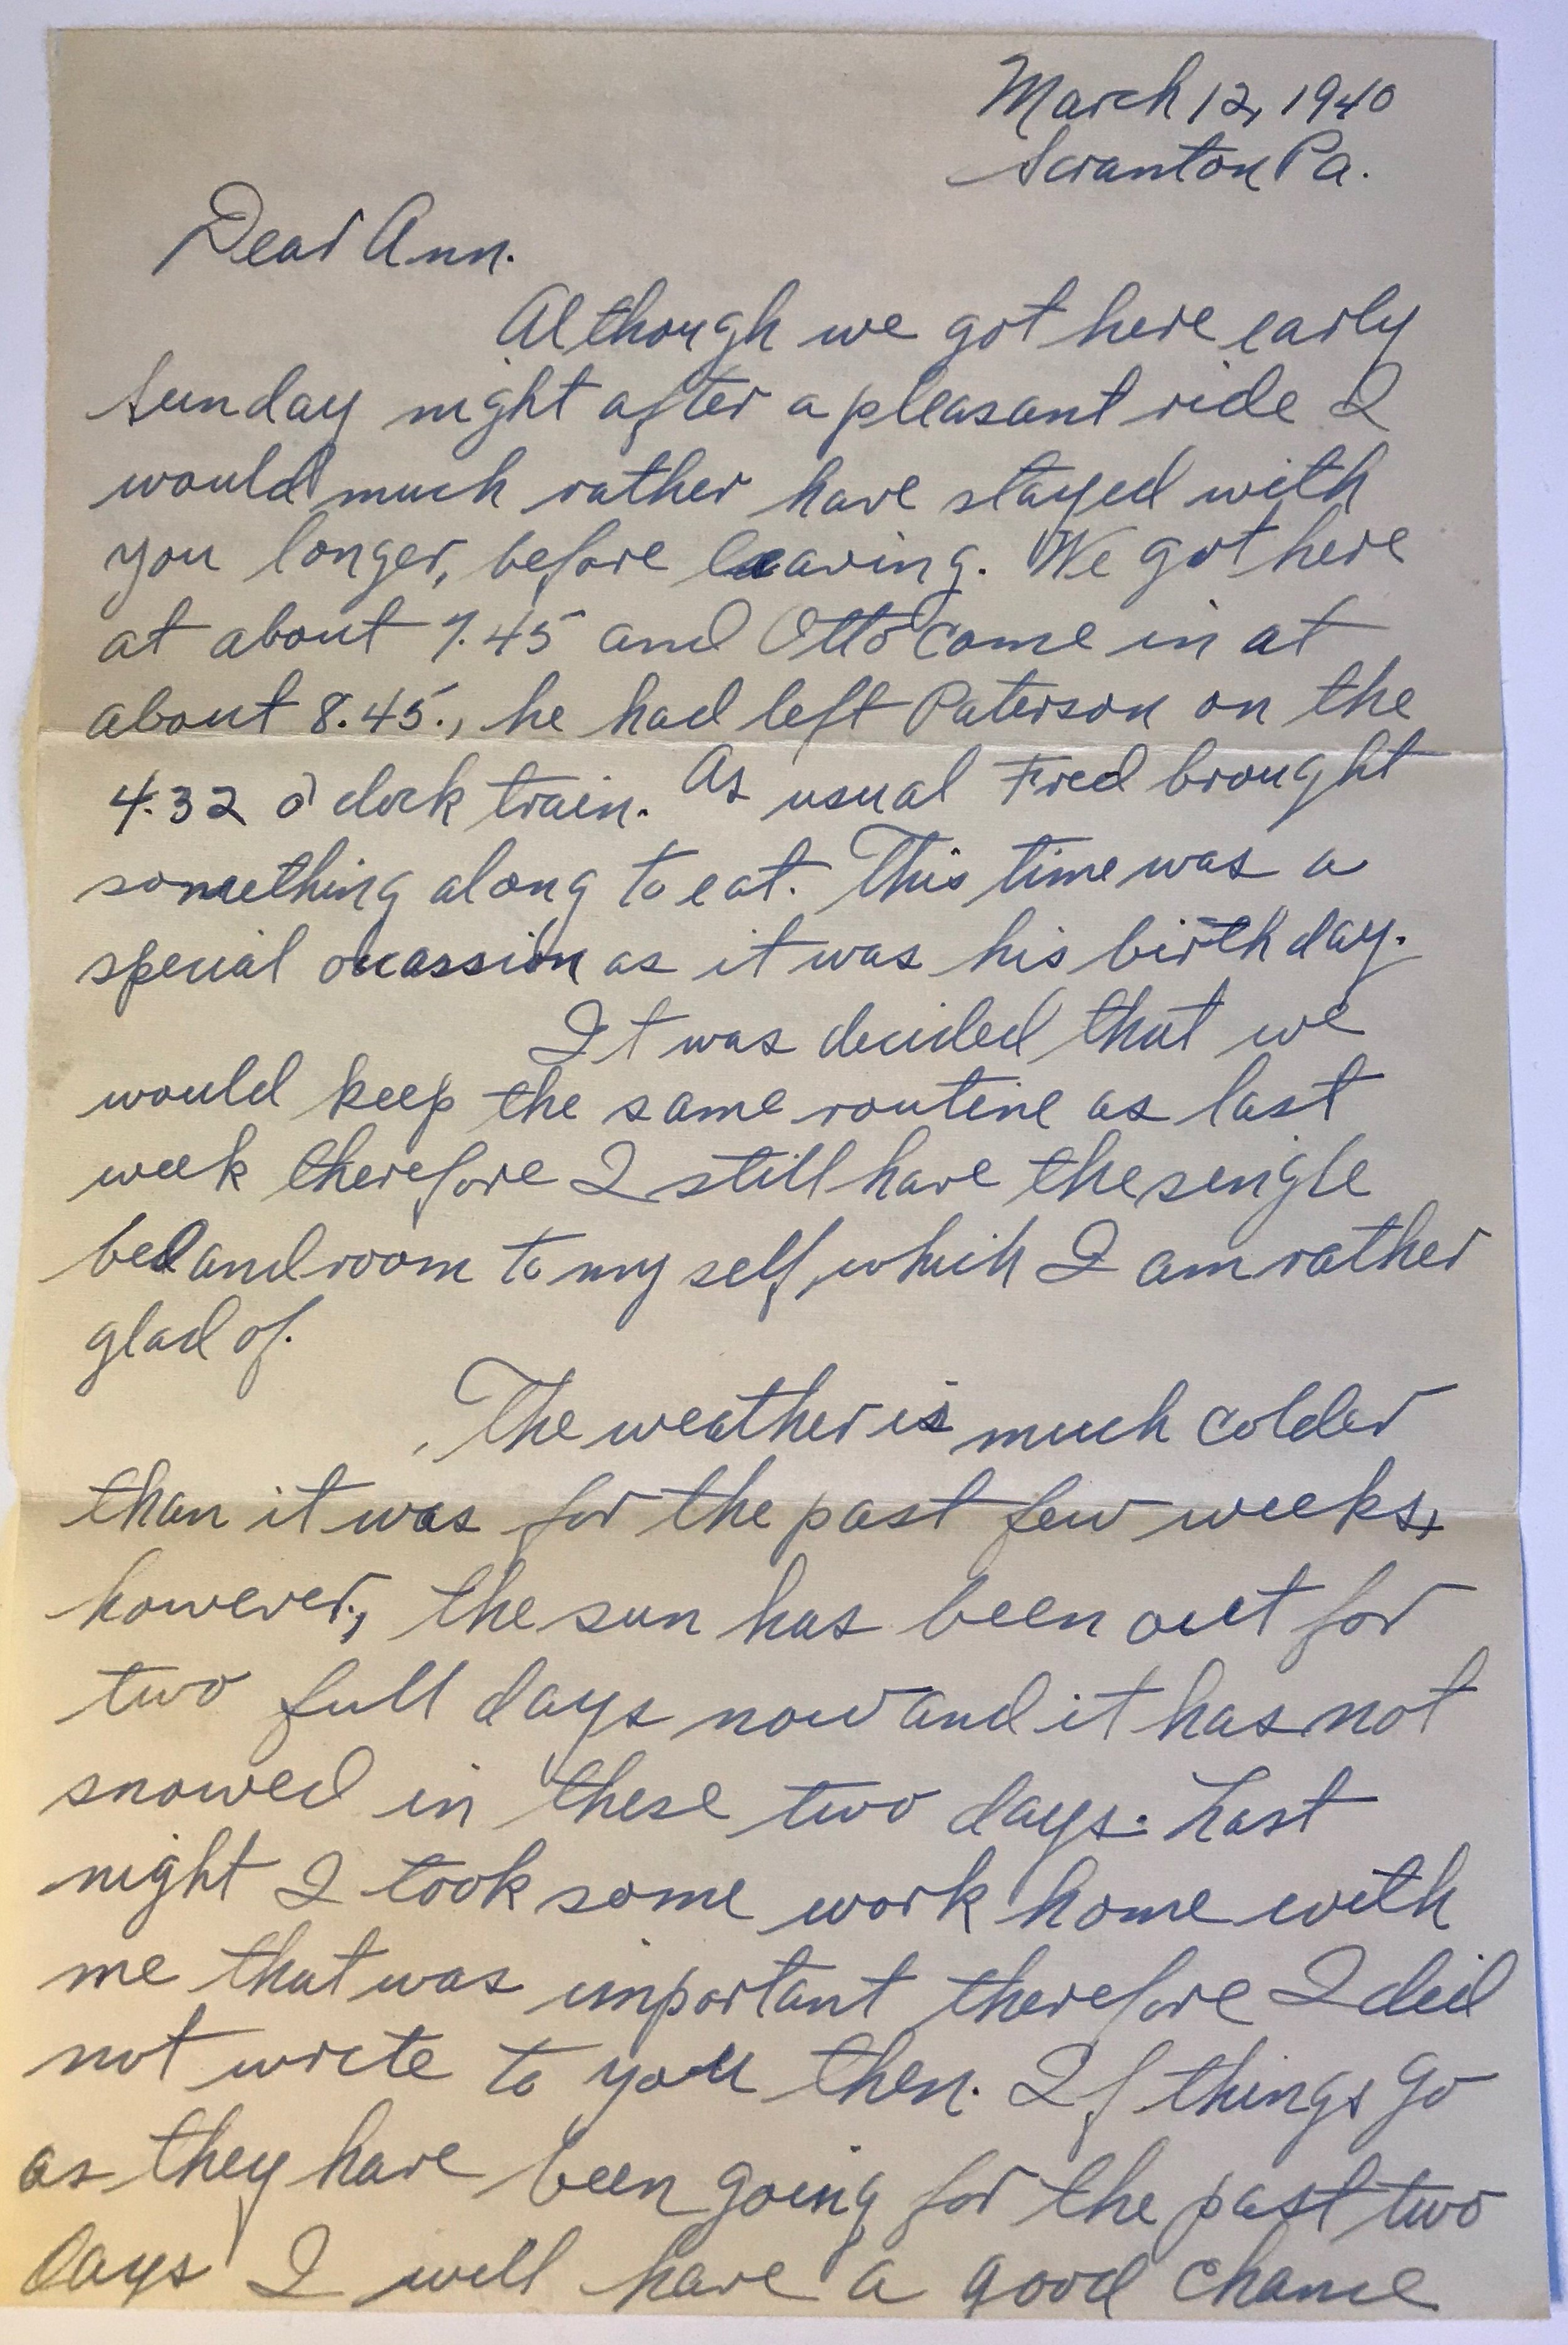 March 12, 1940
Scranton Pa.
Dear Ann.
Although we got here early
Sunday night after a pleasant ride I
would much rather have stayed with
you longer, before leaving. We got here
at about 7.45 and Otto came in at
about 8.45., he had left Paterson on the
4.32 o'clock train. As usual Fred brought
something along to eat. This time was a
special occassion as it was his birthday.
It was decided that we
would keep the same routine as last
week therefore I still have the single
bed and room to my self, which I am rather
glad of.
The weather is much colder
than it was for the past few weeks,
however, the sun has been out for
two full days now and it has not
snowed in these two days. Last
night I took some work home with
me that was important therefore I did
not write to you then. If things go
as they have been going for the past two
days I will have a good chance